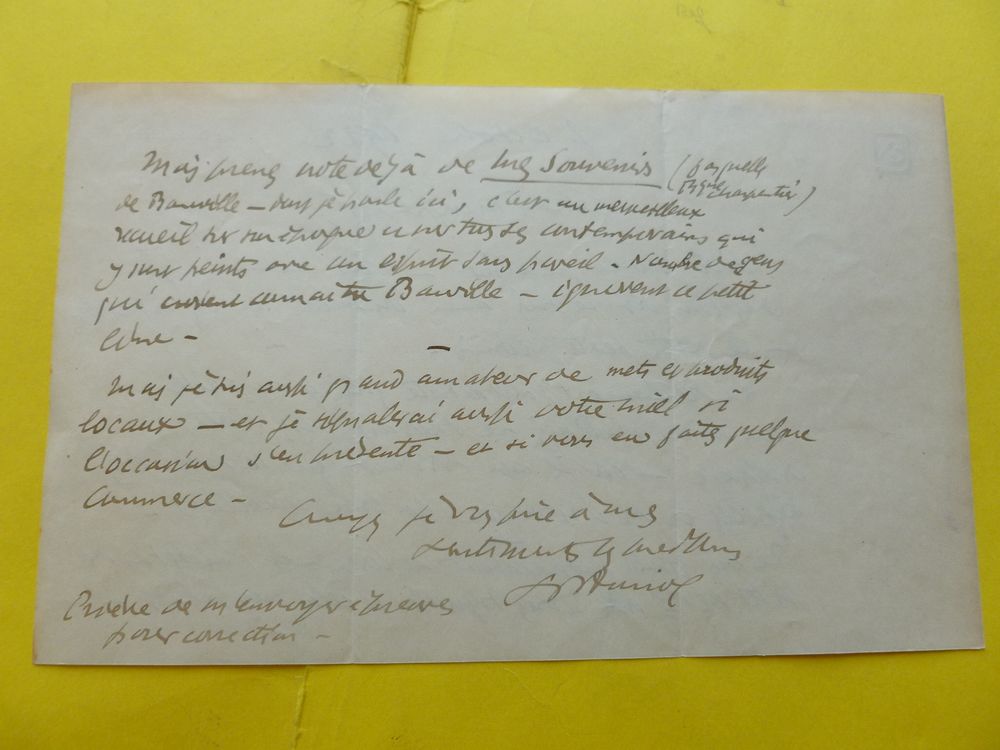 Mais prenez note déjà de Mes Souvenirs (Fasquelle
Charpentier)
de Banville – dont je parle ici, c'est un merveilleux
recueil sur son époque et sur tous ses contemporains qui
y sont peints avec un esprit sans pareil – Nombre de gens
qui croient connaître Banville – ignorent ce petit
livre –
Mais je suis aussi grand amateur de mets et produits
locaux – et je signalerai aussi votre miel si
l'occasion s'en présente – et si vous en faites quelque
commerce –
Croyez je vous prie à mes
sentiments les meilleurs
Prière de m'envoyer épreuves
pour correction –